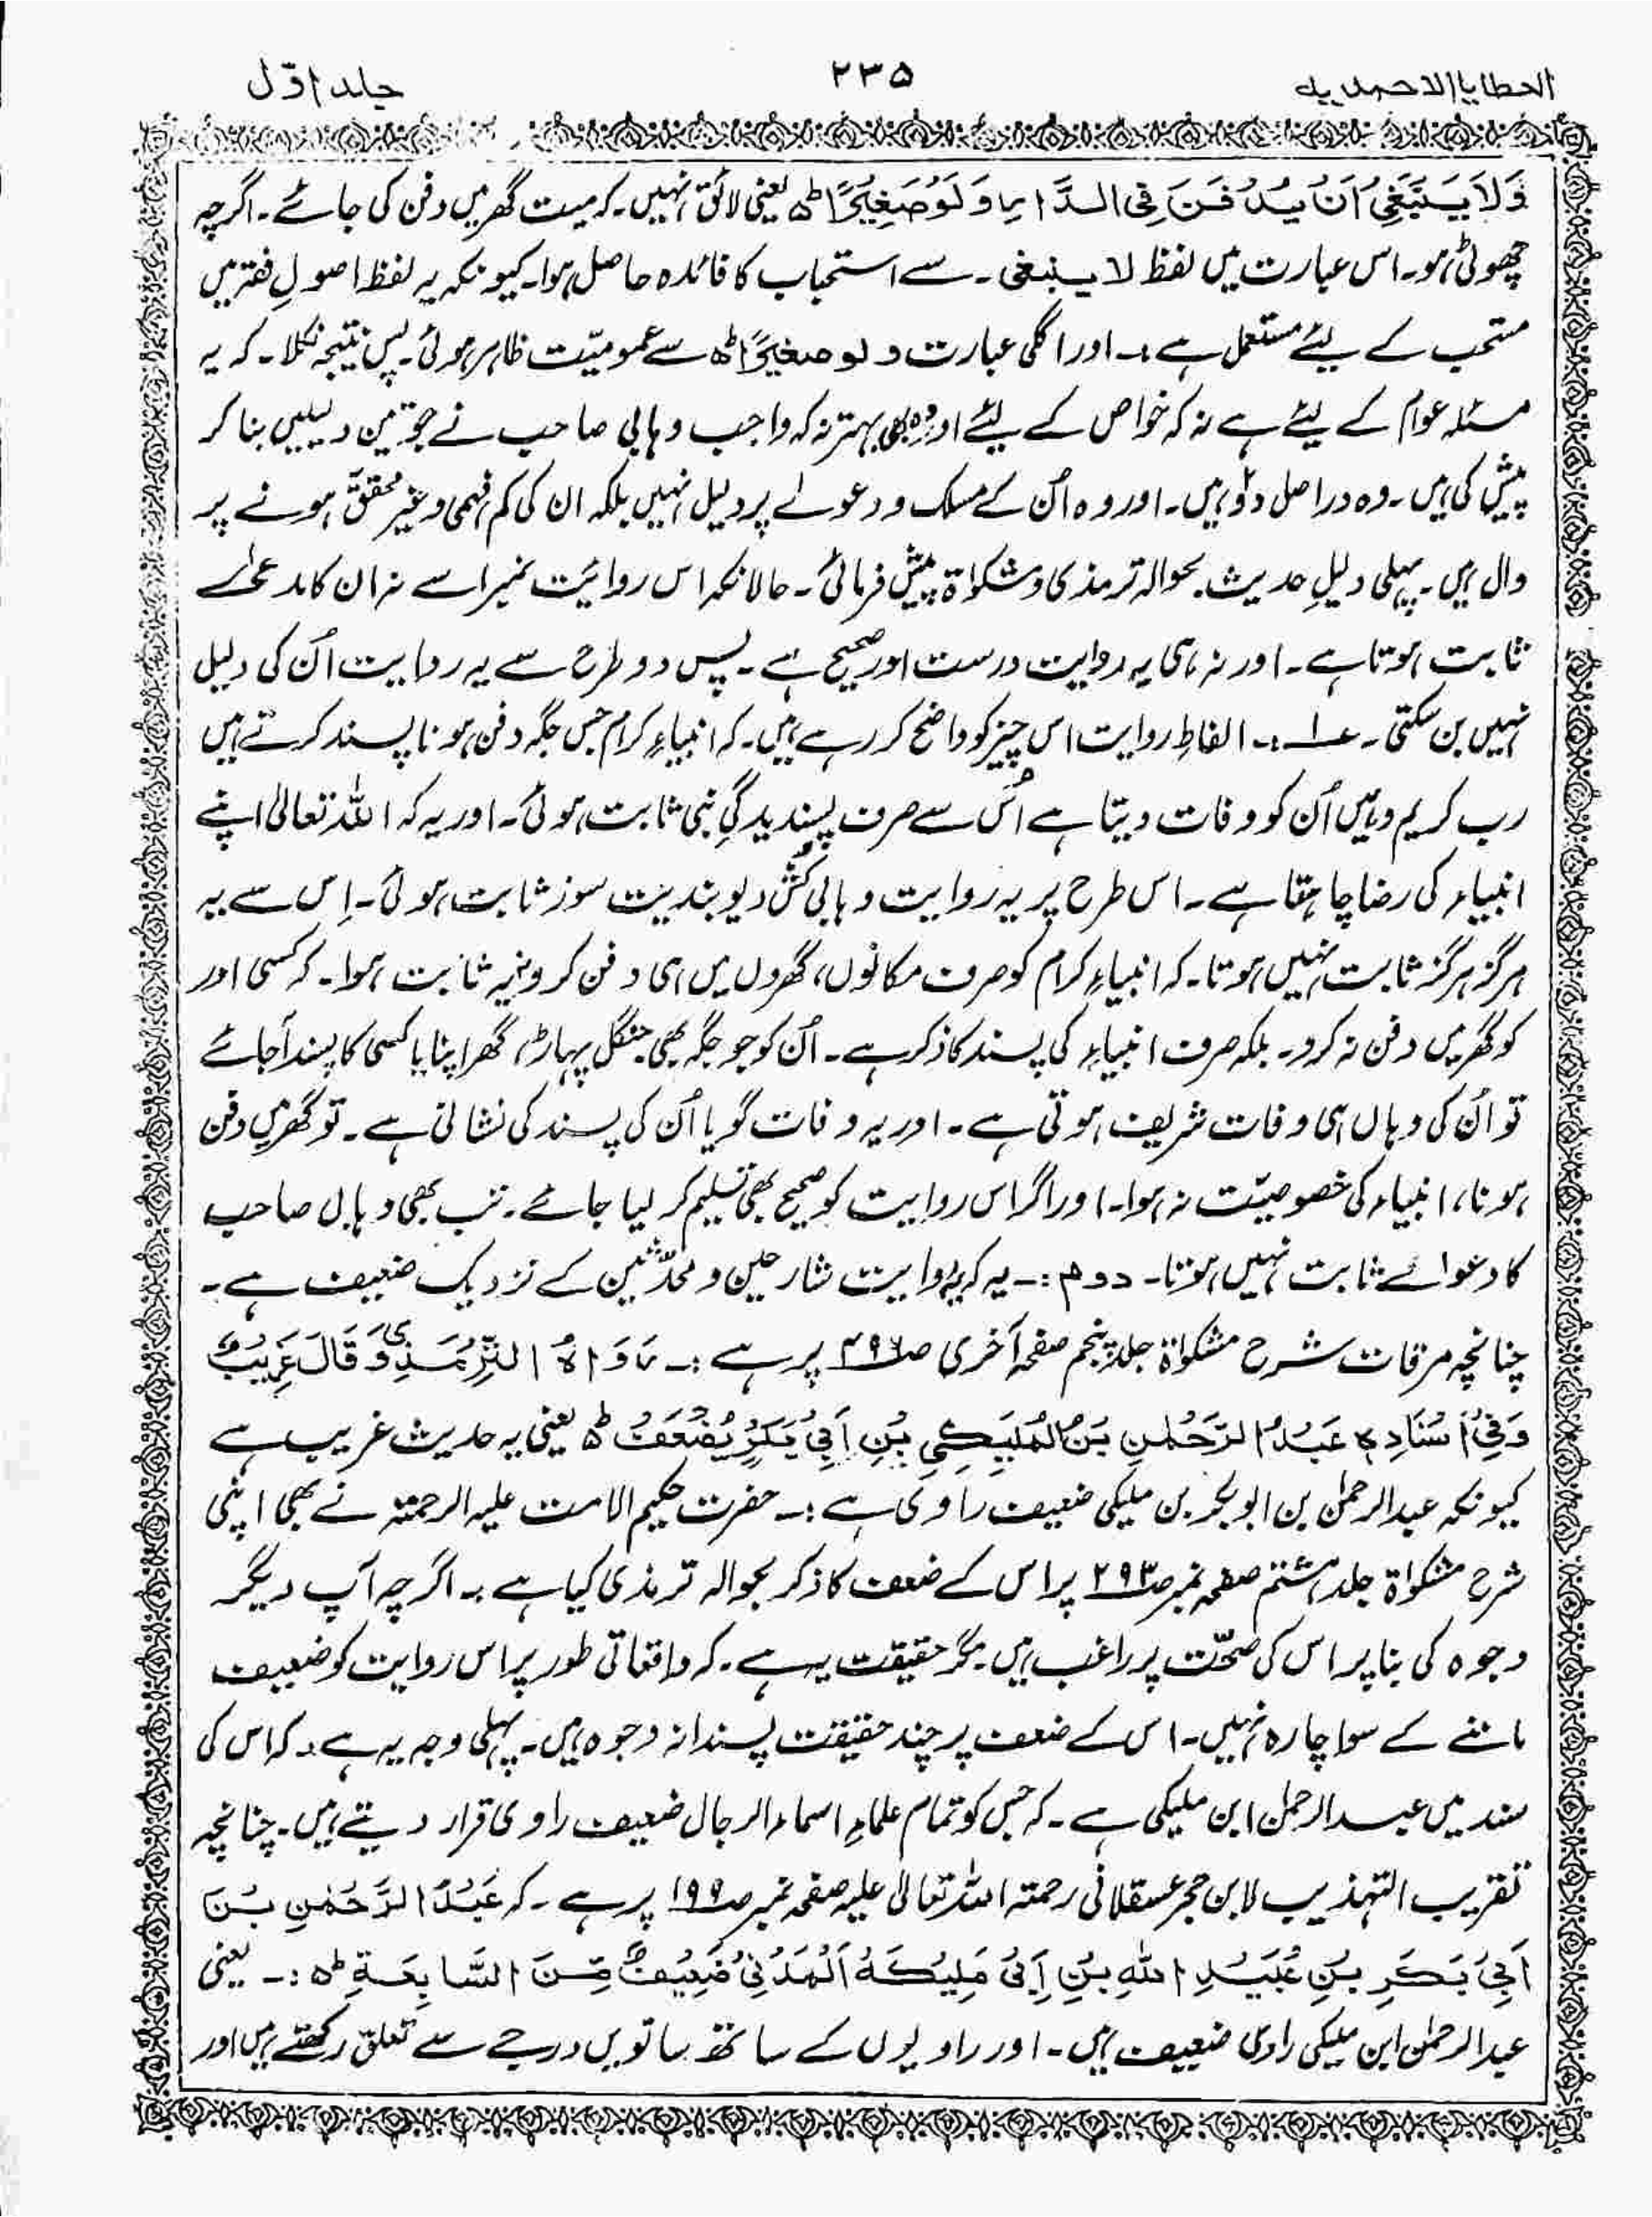 العطایا الاحمدیه
۲۳۵
جلد اوّل
وَلَا یَنْبَغِیْ اَنْ یُدْفَنَ فِی الدَّارِ وَلَوْ صَغِیْرًا ط ہ یعنی لائق نہیں۔ کہ میت گھر میں دفن کی جائے۔ اگرچہ
چھوٹی ہو۔ اس عبارت میں لفظ لا ینبغی۔ سے استحباب کا فائدہ حاصل ہوا۔ کیونکہ یہ لفظ اصولِ فقہ میں
مستحب کے لیئے مستعمل ہے:۔ اور اگلی عبارت ولو صغیرًا ط ہ سے عمومیّت ظاہر ہوئی۔ پس نتیجہ نکلا۔ کہ یہ
مسئلہ عوام کے لیئے ہے نہ کہ خواص کے لیئے اور وہ بھی بہتر نہ کہ واجب وہابی صاحب نے جو تین دلیلیں بنا کر
پیش کی ہیں۔ وہ دراصل دو ہیں۔ اور وہ اُن کے مسلک و دعوےٰ پر دلیل نہیں بلکہ ان کی کم فہمی و غیر محقق ہونے پر
دال ہیں۔ پہلی دلیلِ حدیث بحوالہ ترمذی و مشکوٰۃ پیش فرمائی۔ حالانکہ اس روایَت نمبر ا سے نہ ان کا مدعیٰ
ثابت ہوتا ہے۔ اور نہ ہی یہ روایت درست اور صحیح ہے۔ پس دو طرح سے یہ روایت اُن کی دلیل
نہیں بن سکتی۔ ۱؎:۔ الفاظِ روایت اس چیز کو واضح کر رہے ہیں۔ کہ انبیاءِ کرام جس جگہ دفن ہونا پسند کرتے ہیں
رب کریم وہیں اُن کو وفات دیتا ہے اُس سے صرف پسندیدگیِ نبی ثابت ہوئی۔ اور یہ کہ اللہ تعالیٰ اپنے
انبیاء کی رضا چاہتا ہے۔ اس طرح پر یہ روایت وہابی کُش دیوبندیت سوز ثابت ہوئی۔ اِس سے یہ
ہرگز ہرگز ثابت نہیں ہوتا۔ کہ انبیاءِ کرام کو صرف مکانوں، گھروں میں ہی دفن کرو نہ یہ ثابت ہوا۔ کہ کسی اور
کو گھر میں دفن نہ کرو۔ بلکہ صرف انبیاء کی پسند کا ذکر ہے۔ اُن کو جو جگہ بھی جنگل پہاڑ، گھر اپنا یا کسی کا پسند آجائے
تو اُن کی وہاں ہی وفات شریف ہوتی ہے۔ اور یہ وفات گویا اُن کی پسند کی نشانی ہے۔ تو گھر میں دفن
ہونا، انبیاء کی خصوصیّت نہ ہوا۔ اور اگر اس روایت کو صحیح بھی تسلیم کر لیا جائے۔ تب بھی وہابی صاحب
کا دعوائے ثابت نہیں ہوتا۔ دوم:۔ یہ کہ یہ روایت شارحین و محدّثین کے نزدیک ضعیف ہے۔
چنانچہ مرقات شرح مشکوٰۃ جلد پنجم صفحہ آخری ص ۴۹۶ پر ہے:۔ رَوَاہُ التِّرْمَذِیُّ وَ قَالَ غَرِیْبٌ
وَفِیْ اَسْنَادِہٖ عَبْدُ الرَّحْمٰنِ بْنُ الْمُلَیْکِیِّ بْنِ اَبِیْ بَکْرٍ یُضْعَفُ ط ہ یعنی یہ حدیث غریب ہے
کیونکہ عبدالرحمٰن بن ابوبکر بن ملیکی ضعیف راوی ہے:۔ حضرت حکیم الامت علیہ الرحمتہ نے بھی اپنی
شرح مشکوٰۃ جلد ہشتم صفحہ نمبر ص ۲۹۳ پر اس کے ضعف کا ذکر بحوالہ ترمذی کیا ہے۔ اگرچہ آپ دیگر
وجوہ کی بنا پر اس کی صحّت پر راغب ہیں۔ مگر حقیقت یہ ہے۔ کہ واقعاتی طور پر اس روایت کو ضعیف
ماننے کے سوا چارہ نہیں۔ اس کے ضعف پر چند حقیقت پسندانہ وجوہ ہیں۔ پہلی وجہ یہ ہے۔ کہ اس کی
سند میں عبدالرحمٰن ابن ملیکی ہے۔ کہ جس کو تمام علماءِ اسماء الرجال ضعیف راوی قرار دیتے ہیں۔ چنانچہ
تقریب التہذیب لابن حجر عسقلانی رحمتہ اللہ تعالیٰ علیہ صفحہ نمبر ص ۱۹۹ پر ہے۔ کہ عَبْدُ الرَّحْمٰنِ بْنَ
اَبِیْ بَکَرِ بْنِ عُبَیْدِ اللہِ بْنِ اَبِیْ مَلِیْکَۃُ اَلْمَدَنِیْ ضَعِیْفٌ مِّنَ السَّابِعَۃِ ط ہ:۔ یعنی
عبدالرحمٰن ابن ملیکی راوی ضعیف ہیں۔ اور راویوں کے ساتھ ساتویں درجے سے تعلق رکھتے ہیں اور